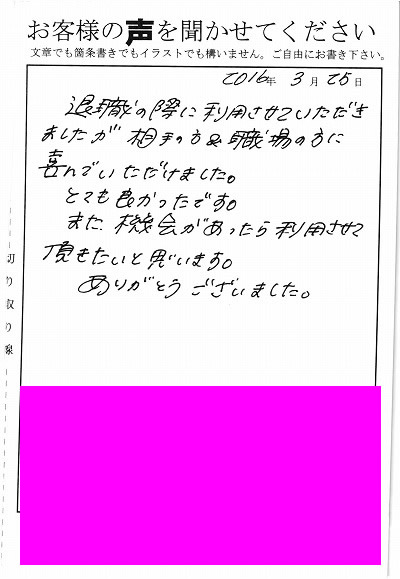 お客様の声を聞かせてください
文章でも箇条書きでもイラストでも構いません。ご自由にお書き下さい。
2016年 3月 25日
退職の際に利用させていただき
ましたが 相手の方&職場の方に
喜んでいただけました。
とても良かったです。
また 機会があったら利用させて
頂きたいと思います。
ありがとうございました。
切り取り線